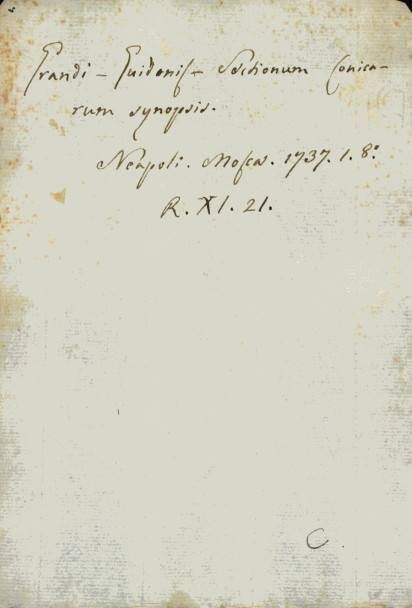 Grandi – Guidonis – Sectionum Conica-
rum synopsis.
Neapoli. Mosca. 1737. 1. 8.º
R. XI. 21.
C